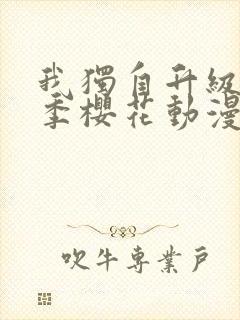 我獨自升級
季櫻花動漫
吹牛專業戶